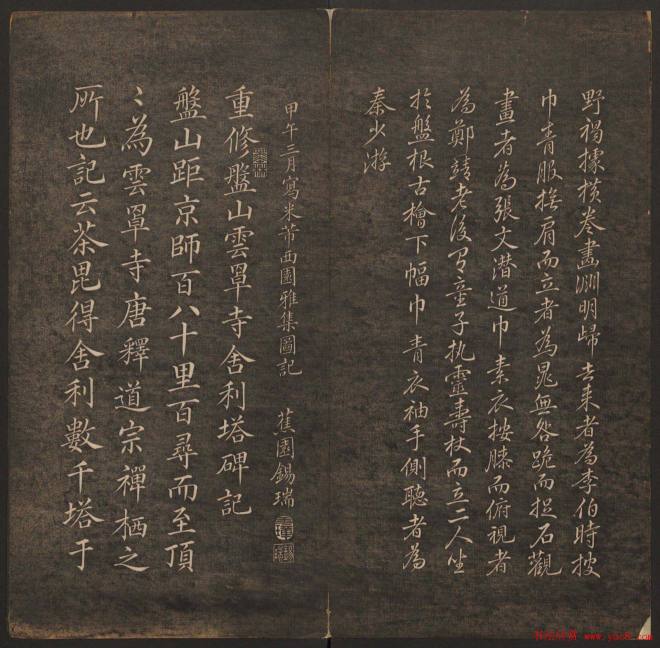 野褐據橫卷畫淵明歸去來者為李伯時披
巾青服撫肩而立者為晁無咎跪而捉石觀
畫者為張文潛道巾素衣按膝而俯視者
為鄭靖老後有童子執靈壽杖而立二人坐
於盤根古檜下幅巾青衣袖手側聽者為
秦少游
甲午三月寫米芾西園雅集圖記 蕉園錫瑞
重修盤山雲罩寺舍利塔碑記
盤山距京師百八十里百尋而至頂
〻為雲罩寺唐釋道宗禪栖之
所也記云茶毘得舍利數千塔于
www.yac8.com